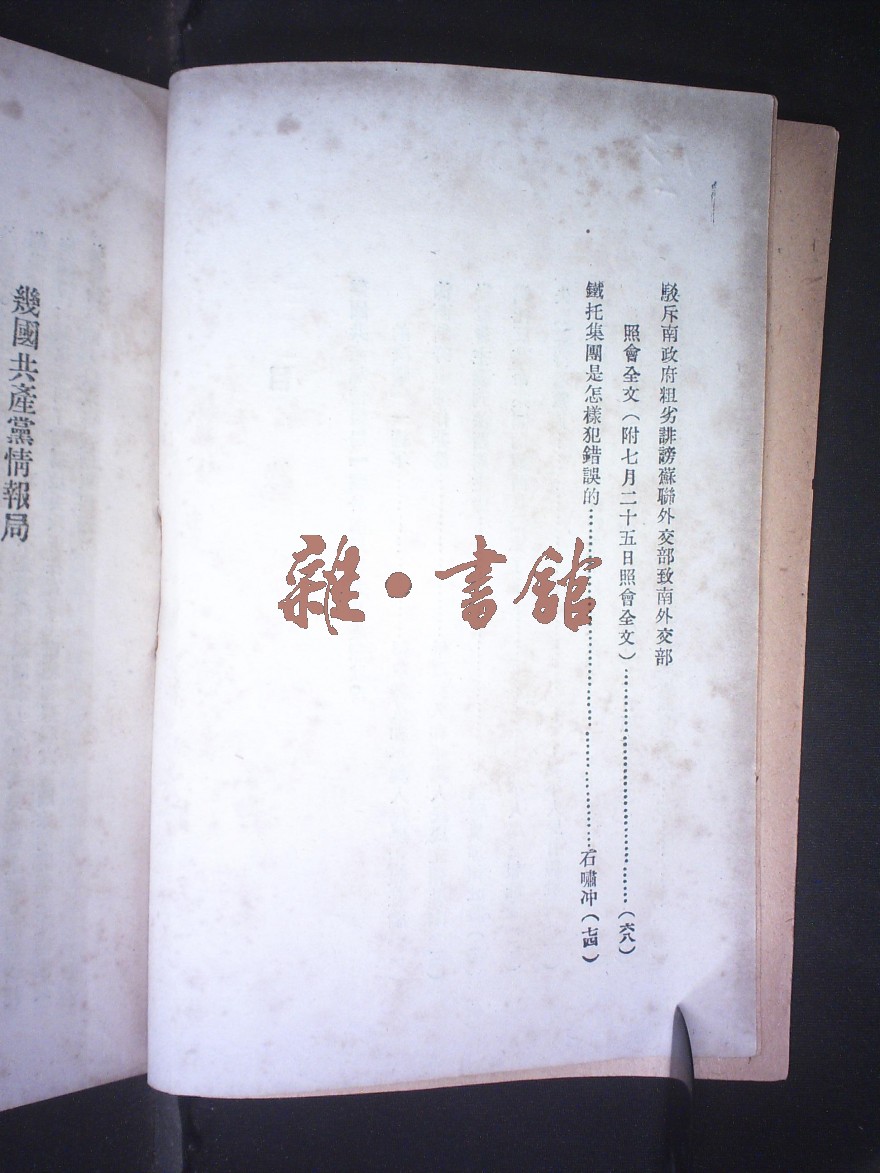 駁斥南政府粗劣誹謗蘇聯外交部致南外交部
照會全文(附七月二十五日照會全文)……………………(六八)
鐵托集團是怎樣犯錯誤的……………………石嘯冲(七四)
幾國共產黨情報局
雜·書館